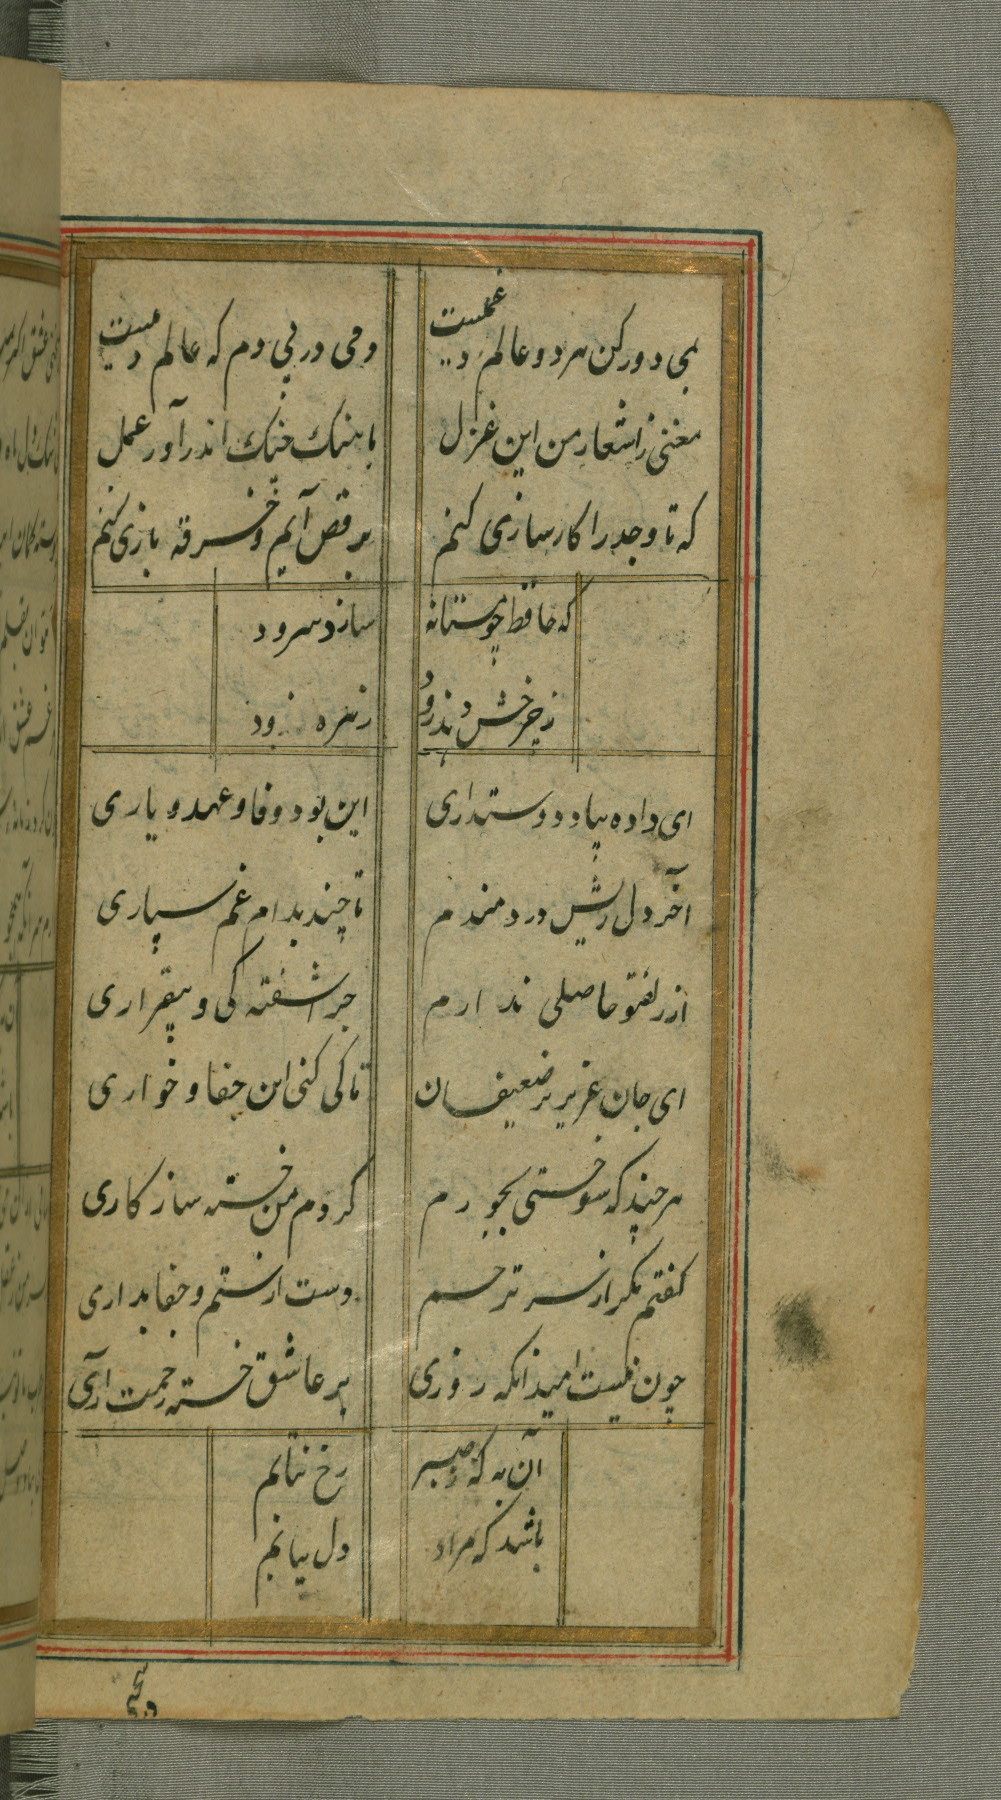 بمی دور کن هر دو عالم دمیست غمیست
دمی در پی دم که عالم دمیست
مغنی ز اشعار من این غزل
باهنگ چنک اندر آور عمل
که تا وجد را کارسازی کنم
برقص آیم و خرقه بازی کنم
که حافظ چو مستانه
سازد سرود
ز چرخش دهد رود
زهره درود
ای داده بباد دوستداری
این بود وفا و عهد و یاری
آخر دل ریش دردمندم
تا چند بدام غم سپاری
از زلف تو حاصلی ندارم
جز آشفته کی و بیقراری
ای جان عزیز بر ضعیفان
تا کی کنی این جفا و خواری
هر چند که سوختی بجورم
کردم من خسته سازکاری
گفتم مکر از سر ترحم
دست از ستم و جفا بداری
چون نیست امید آنکه روزی
بر عاشق خسته رحمت آری
آن به که ز صبر
رخ نتابم
باشد که مراد
دل بیابم